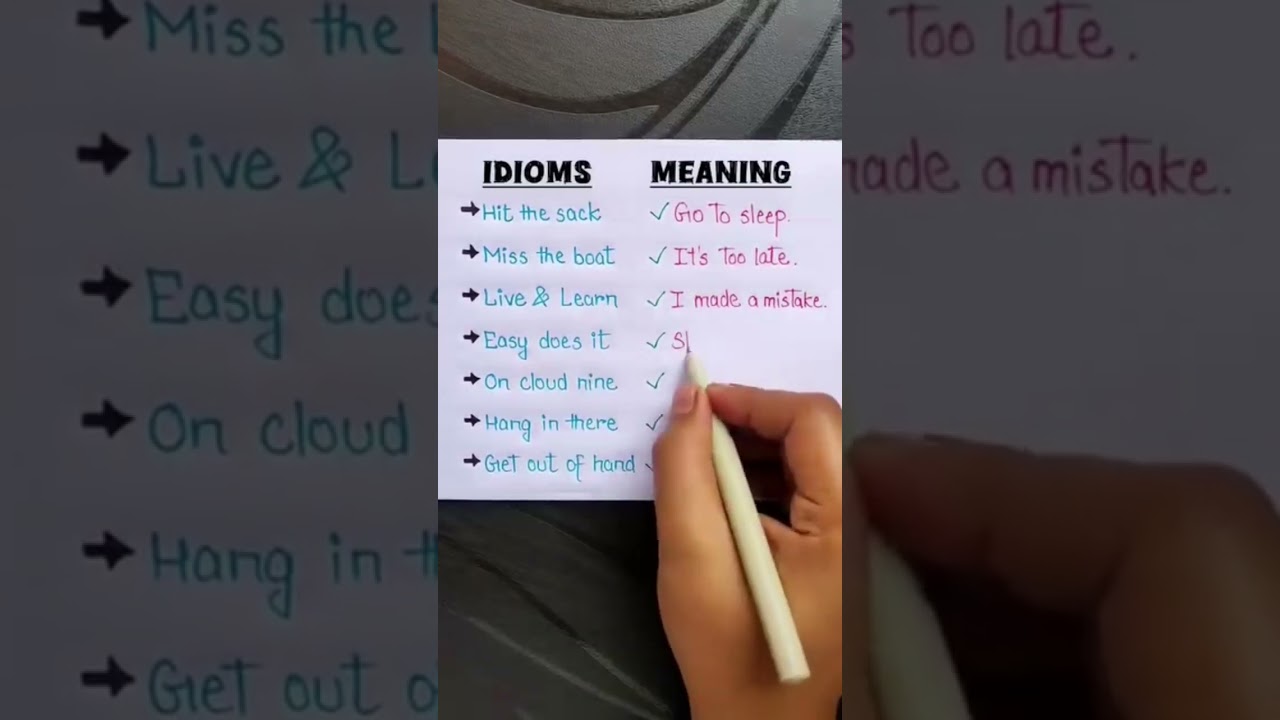 IDIOMS MEANING
→ Hit the sack ✓ Go To sleep.
→ Miss the boat ✓ It's Too late.
→ Live & Learn ✓ I made a mistake.
→ Easy does it ✓ Sl
→ On cloud nine ✓
→ Hang in there ✓
→ Get out of hand ✓